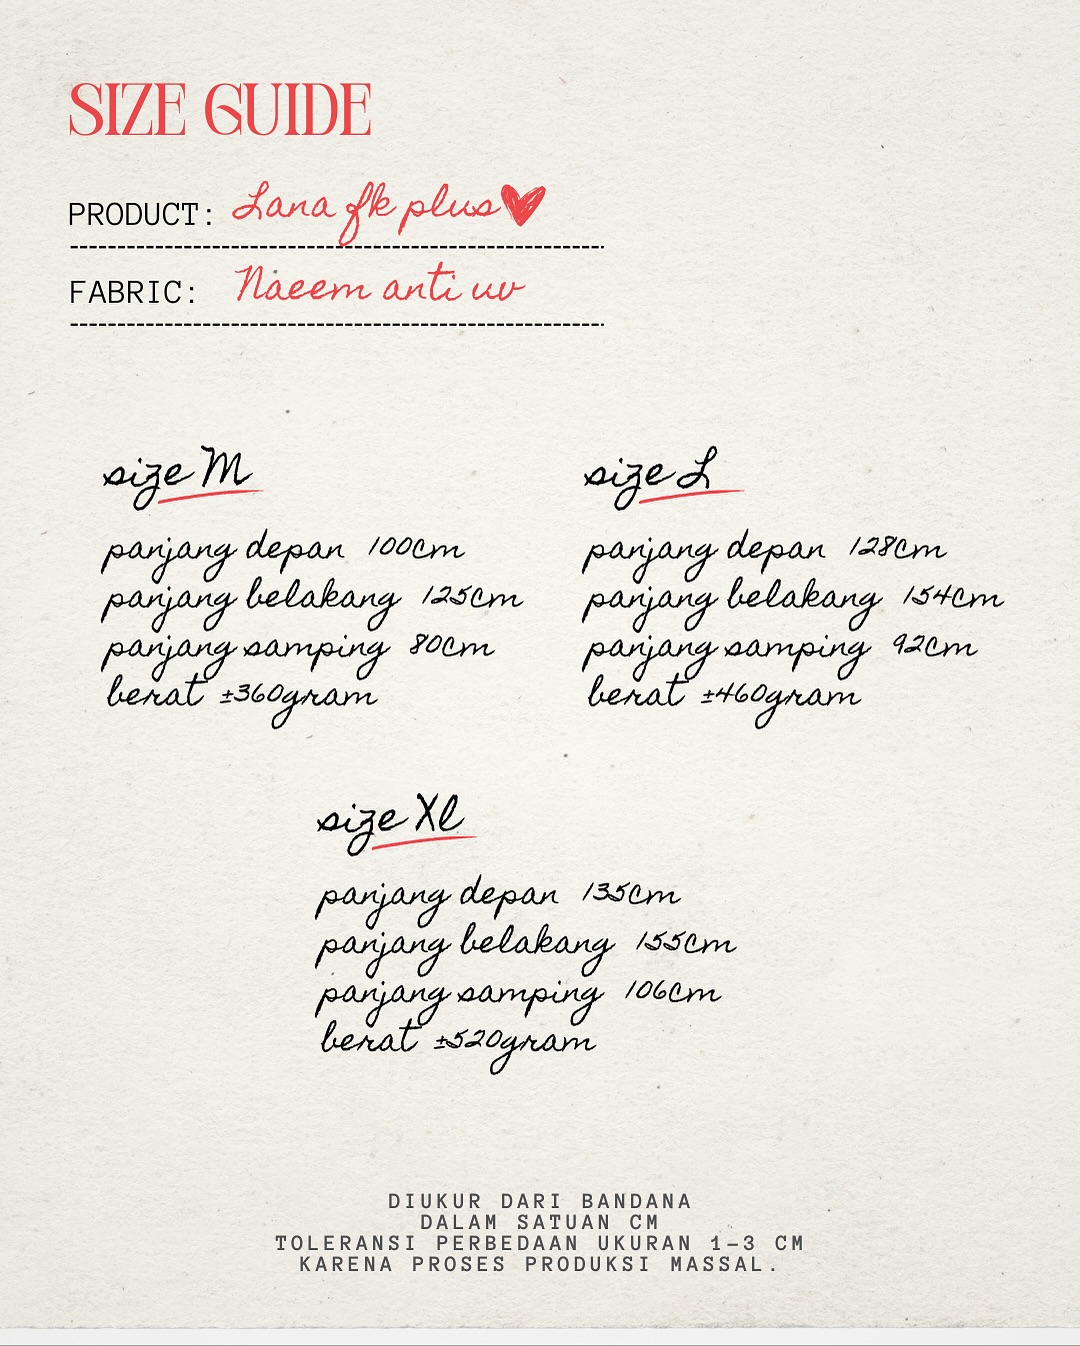 SIZE GUIDE
PRODUCT: Lana fk plus
FABRIC: Naeem anti uv
size M
panjang depan 100cm
panjang belakang 125cm
panjang samping 80cm
berat ±360gram
size L
panjang depan 128cm
panjang belakang 154cm
panjang samping 92cm
berat ±460gram
size Xl
panjang depan 135cm
panjang belakang 155cm
panjang samping 106cm
berat ±520gram
DIUKUR DARI BANDANA
DALAM SATUAN CM
TOLERANSI PERBEDAAN UKURAN 1-3 CM
KARENA PROSES PRODUKSI MASSAL.